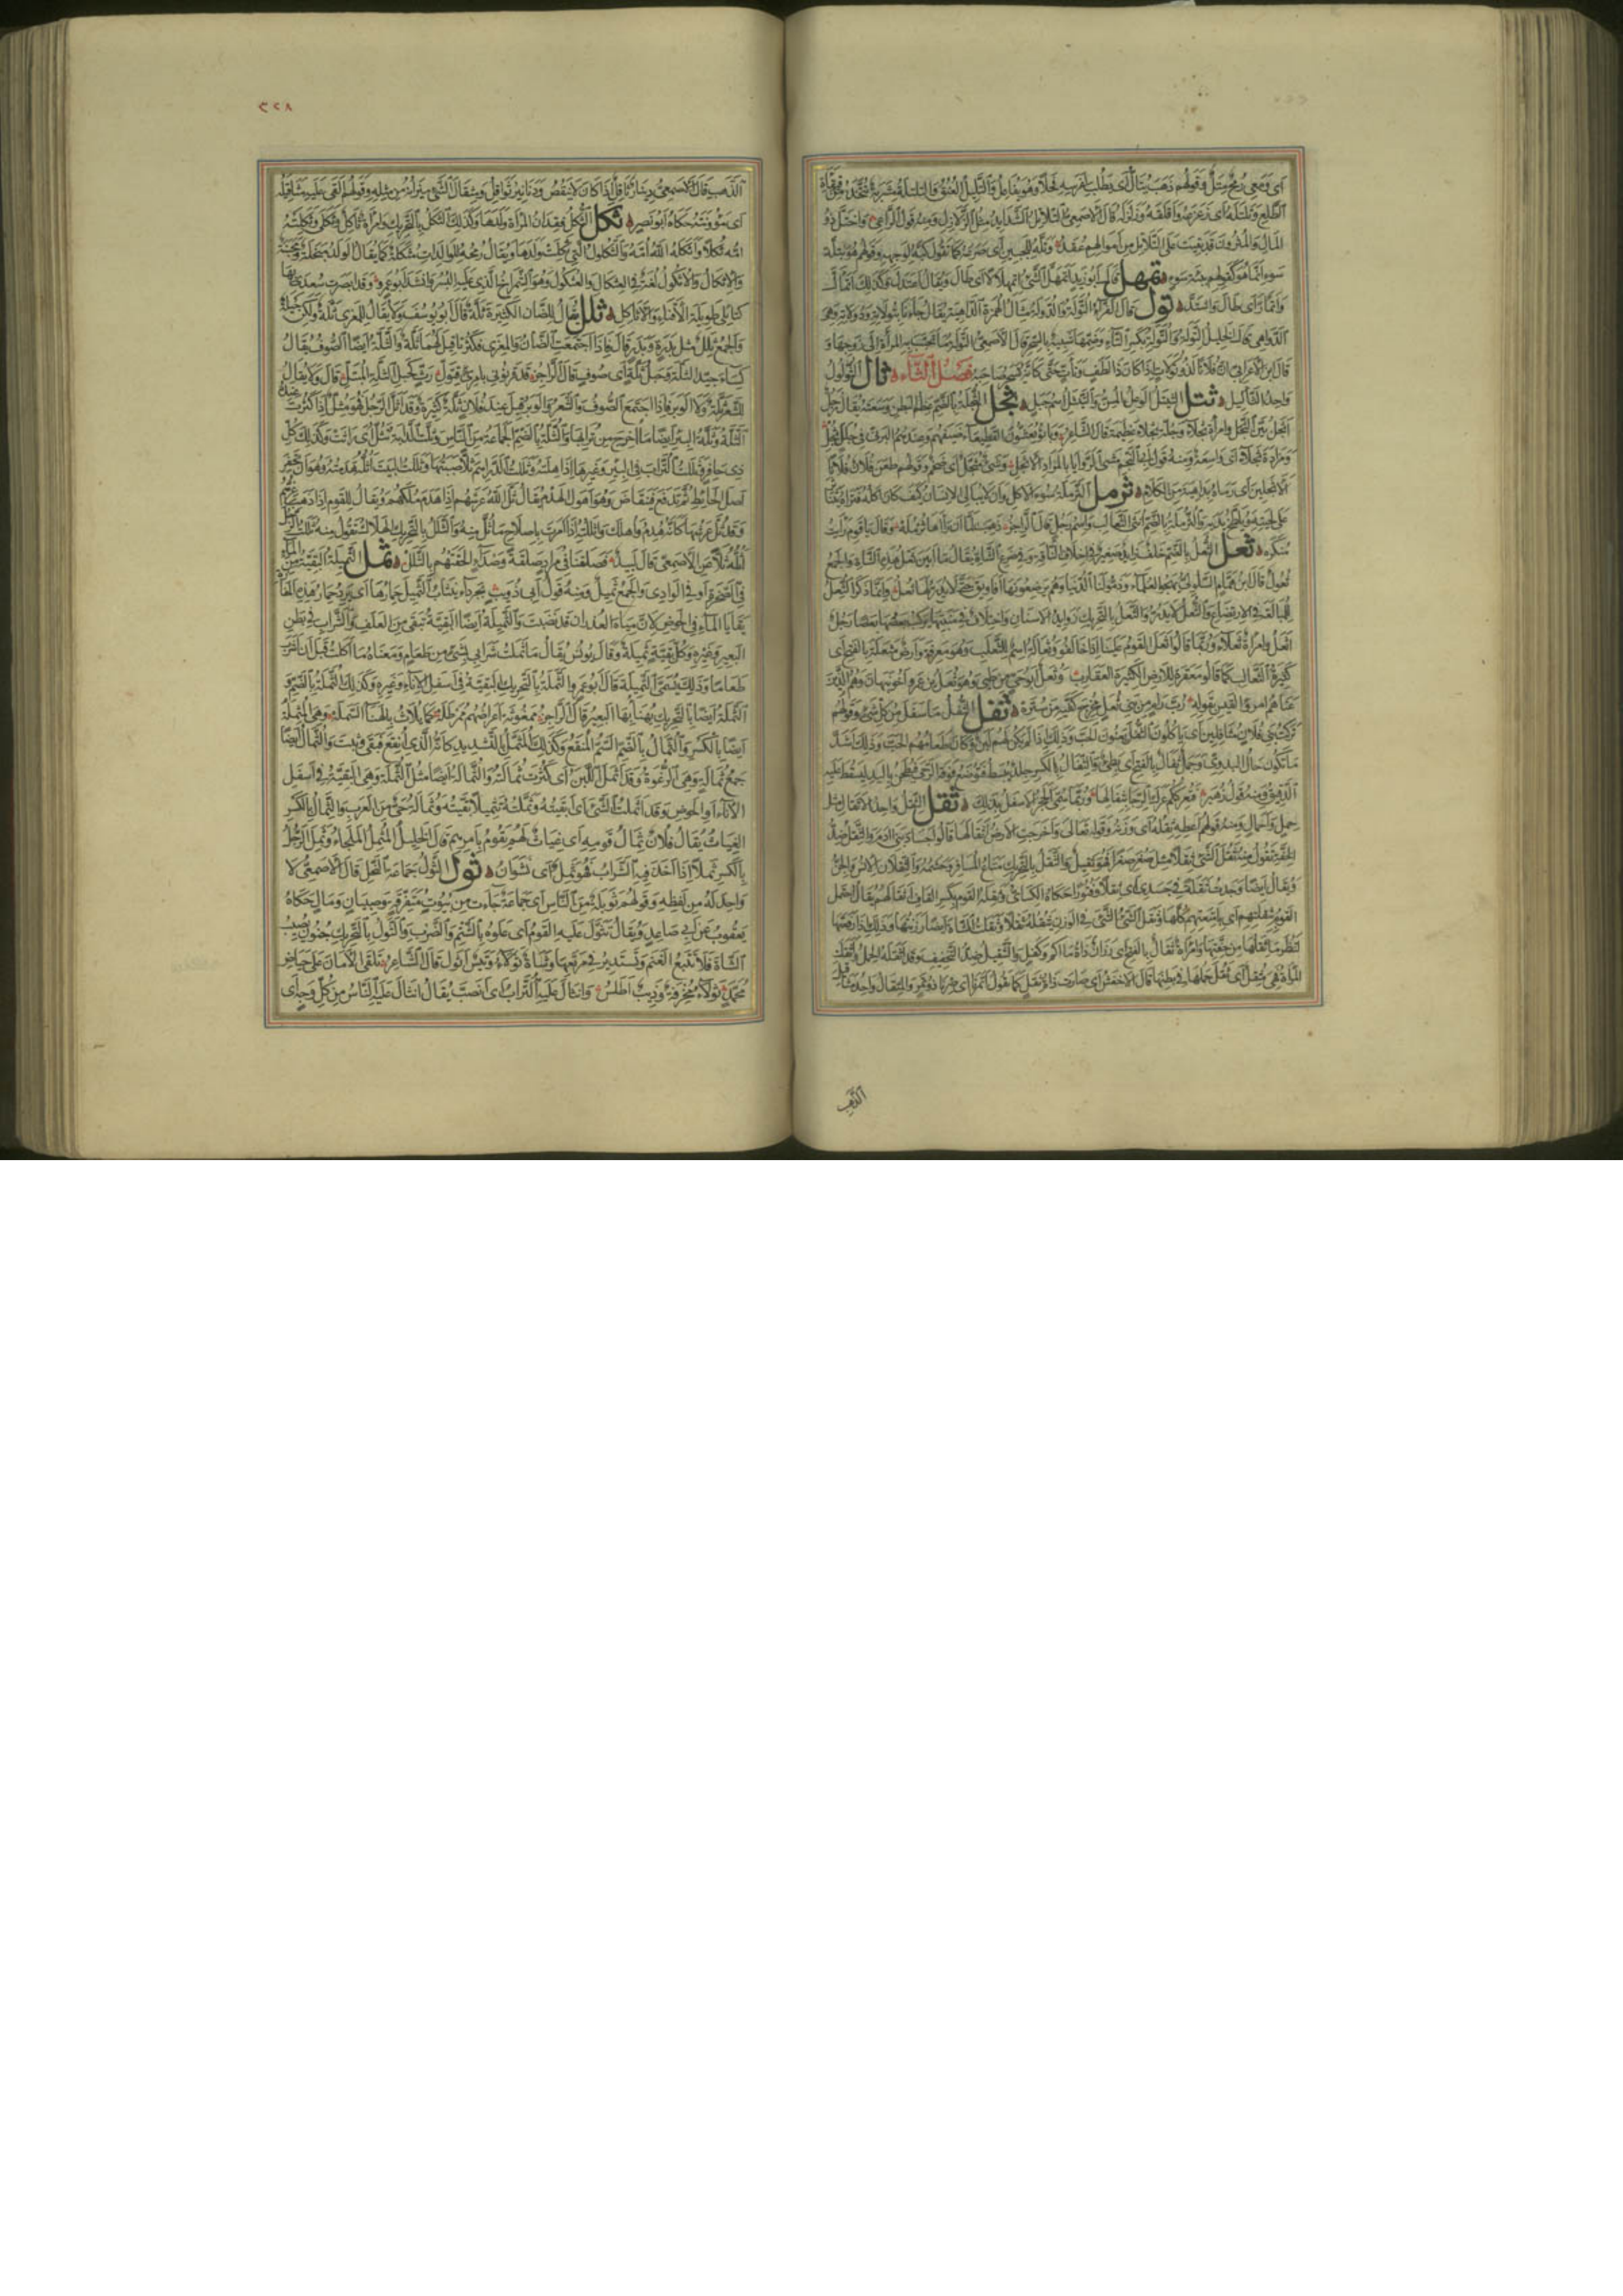 اى ومعى رمح متل وقولهم ذهب يتال اى يطلب لفرسه فحلا وهو يفاعل والتليل العنق والتلتلة مشربة تتخذ من قيقاءة
الطلع وتلتله اى زعزعه واقلقه وزلزله قال الاصمعى التلاتل الشدايد مثل الزلازل ومنه قول الراعى واختل ذو
المال والمثرون قد بقيت على التلاتل من اموالهم عقد وتله للجبين اى صرعه كما تقول كبه لوجهه وقولهم هو بتلة
سوء انما هو كقولهم ببيئة سوء تمهل قال ابو زيد اتمهل الشئ اتمهلالا اى طال ويقال اعتدل وكذلك اتمأل
واتمأر اى طال واشتد تول قال الفراء التولة والدولة مثال الهمزة الداهية يقال جاءنا بتولاته ودولاته وهى
الدواهى قال الخليل التولة والتولة بكسر التاء وضمها شبيه بالسحر قال الاصمعى التولة ما تحبب به المرأة الى زوجها و
قال ابن الاعرابى ان فلانا لذو تولات اذا كان ذا لطف وتأت حتى كانه يسحر صاحبه فصل الثاء ثال الثؤلول
واحد الثآليل ثتل الثيتل الوعل المسن والثيتل اسم جبل ثجل الثجلة بالضم عظم البطن وسعته يقال رجل
اثجل بين الثجل وامرأة ثجلاء وجلة ثجلاء عظيمة قال الشاعر
ومزادة ثجلاء اى واسعة ومنه قول ابى النجم مشى الروايا بالمزاد الاثجل وشئ مثجل اى ضخم وقولهم طعن فلان فلانا
الاثجلين اى رماه بداهية من الكلام ثرمل الثرملة سوء الاكل وان لا يبالى الانسان كيف كان اكله
على لحيته ويلطخ يديه والثرملة بالضم انثى الثعالب واسم رجل قال الراجز ذهب لما ان رآها ثرمله وقال يا قوم رأيت
منكره ثعل الثعل بالضم خلف زايد صغير فى اخلاف الناقة وفى ضرع الشاة يقال ما ابين ثعل هذه الشاة والجمع
ثعول قال ابن همام السلولى يهجو العلماء وذموا لنا الدنيا وهم يرضعونها افاويق حتى لا يدر لها ثعل وانما ذكر الثعل
للمبالغة فى الارتضاع والثعل لا يدر والثعل بالتحريك زوايد فى الاسنان واختلاف فى منبتها يركب بعضها بعضا رجل
اثعل وامرأة ثعلاء وربما قالوا اثعل القوم علينا اذا خالفوا وثعالة اسم الثعلب وهو معرفة وارض مثعلة بالفتح اى
كثيرة الثعالب كما قالوا معقرة للارض الكثيرة العقارب وثعل ابو حى من طى وهو ثعل بن عمرو اخو نبهان وهم الذين
عناهم امرؤ القيس بقوله رب رام من بنى ثعل مخرج كفيه من ستره ثفل الثفل ما سفل من كل شئ وقولهم
تركت بنى فلان مثافلين اى ياكلون الثفل يعنون الحب وذلك اذا لم يكن لهم لبن وكان طعامهم الحب وذلك اشد
ما تكون حال البدوى وجمل ثفال بالفتح اى بطئ والثفال بالكسر جلد يبسط فتوضع فوقه الرحى فيطحن باليد ليسقط عليه
الدقيق ومنه قول زهير فتعرككم عرك الرحى بثفالها وربما سمى الحجر الاسفل بذلك ثقل الثقل واحد الاثقال مثل
حمل واحمال ومنه قولهم اعطه ثقله اى وزنه وقوله تعالى واخرجت الارض اثقالها قالوا اجساد بنى ادم والثقل ضد
الخفة تقول منه ثقل الشئ ثقلا مثل صغر صغرا فهو ثقيل والثقل بالتحريك متاع المسافر وحشمه والثقلان الانس والجن
ويقال ايضا وجدت ثقلة فى جسدى اى ثقلا وفتورا حكاه الكسائى وثقلة القوم بكسر القاف اثقالهم يقال احتمل
القوم بثقلتهم اى بامتعتهم كلها وثقل الشئ الشئ فى الوزن يثقله ثقلا وثقلت الشاة ايضا وزنتها وذلك اذا رفعتها
لتنظر ما ثقلها من خفتها وامرأة ثقال بالفتح اى رزان ذات مآكم وكفل والتثقيل ضد التخفيف وقد اثقله الحمل واثقلت
المرأة فهى مثقل اى ثقل حملها فى بطنها قال الاخفش اى صارت ذات ثقل كما تقول اتمرنا اى صرنا ذوى تمر والمثقال واحد مثاقيل
الذهب
٣٢٨
الذهب قال الاصمعى دينار ثاقل اذا كان لا ينقص ودنانير ثواقل ومثقال الشئ ميزانه من مثله وقولهم القى عليه مثاقيله
اى مؤونته حكاه ابو نصر ثكل الثكل فقدان المرأة ولدها وكذلك الثكل بالتحريك وامرأة ثاكل وثكلى وثكلته
امه ثكلا واثكله الله امه والثكول التى ثكلت ولدها ويقال رمحه للوالدات مثكلة كما يقال الولد مبخلة ومجبنة
والاثكال والاثكول لغة فى العثكال والعثكول وهو الشمراخ الذى عليه البسر وانشد ابو عمرو وقد ابصرت سعدى بها
كتائلى طويلة الاقناء والاثاكل ثلل يقال للضأن الكثيرة ثلة قال ابو يوسف ولا يقال للمعزى ثلة ولكن حيلة
والجمع ثلل مثل بدرة وبدر قال فاذا اجتمعت الضأن والمعزى فكثرتا قيل لهما ثلة والثلة ايضا الصوف يقال
كساء جيد الثلة وحبل ثلة اى صوف قال الراجز قد قرنونى بامرئ قثول رث كحبل الثلة المبتل قال ولا يقال
للشعر ثلة ولا للوبر فاذا اجتمع الصوف والشعر والوبر قيل عند فلان ثلة كثيرة وقد اثل الرجل فهو مثل اذا كثرت عنده
الثلة وثلة البئر ايضا ما اخرج من ترابها والثلة بالضم الجماعة من الناس وثلت الدابة تثل اى راثت وكذلك كل
ذى حافر وثللت التراب فى البئر وغيرها اذا هلته وثللت الدراهم ثلا صببتها وثللت البيت اثله هدمته وهو ان تحفر
اصل الحايط ثم تدفع فينقاض وهو اهول الهدم يقال ثل الله عرشهم اذا هدم ملكهم ويقال للقوم اذا ذهب عزهم
قد ثل عرشهم واثللته اذا امرت باصلاح ما ثل منه والثلل بالتحريك الهلاك تقول منه ثللت الرجل
اثله ثلا عن الاصمعى قال لبيد فصلقنا فى مراد صلقة وصداء الحقتهم بالثلل ثمل الثميلة البقية من الماء
فى الصخرة او فى الوادى والجمع ثميل ومنه قول ابى ذويب بجرداء ينتاب الثميل حمارها اى يرد حمار هذه المفازة
بقايا الماء فى الحوض لان مياه الغدران قد نضبت والثميلة ايضا البقية تبقى من العلف والشراب فى بطن
البعير وغيره وكل بقية ثميلة وقال يونس يقال ما ثملت شرابى بشئ من طعام ومعناه ما اكلت قبل ان اشرب
طعاما وذلك يسمى الثميلة قال ابو عمرو الثملة بالتحريك البقية فى اسفل الاناء وغيره وكذلك الثملة بالضم و
الثملة ايضا بالتحريك يهنأ بها البعير قال الراجز ممغوثة اعراضهم ممرطله كما يلاث بالهناء الثمله وهى المثملة
ايضا بالكسر والثمال بالضم السم المنقع وكذلك المثمل بالتشديد كانه الذى انقع فبقى وثبت والثمال ايضا
جمع ثمالة وهى الرغوة وقد اثمل اللبن اى كثرت ثمالته والثمالة ايضا مثل الثملة وهى البقية فى اسفل
الاناء او الحوض وقد اثملت الشئ اى ابقيته وثملته تثميلا بقيته وثمالة حى من العرب والثمال بالكسر
الغياث يقال فلان ثمال قومه اى غياث لهم يقوم بامرهم قال الخليل المثمل الملجاء وثمل الرجل
بالكسر ثملا اذا اخذ فيه الشراب فهو ثمل اى نشوان ثول الثول جماعة النحل قال الاصمعى لا
واحد له من لفظه وقولهم ثويلة من الناس اى جماعة جاءت من بيوت متفرقة وصبيان ومال حكاه
يعقوب عن ابى صاعد ويقال تثول عليه القوم اى علوه بالشتم والضرب والثول بالتحريك جنون يصيب
الشاة فلا تتبع الغنم وتستدير فى مرتعها وشاة ثولاء وتيس اثول قال الشاعر تلقى الامان على حياض
محمد ثولاء مخرفة وذيب اطلس وانثال عليه التراب اى انصب يقال انثال عليه الناس من كل وجه اى